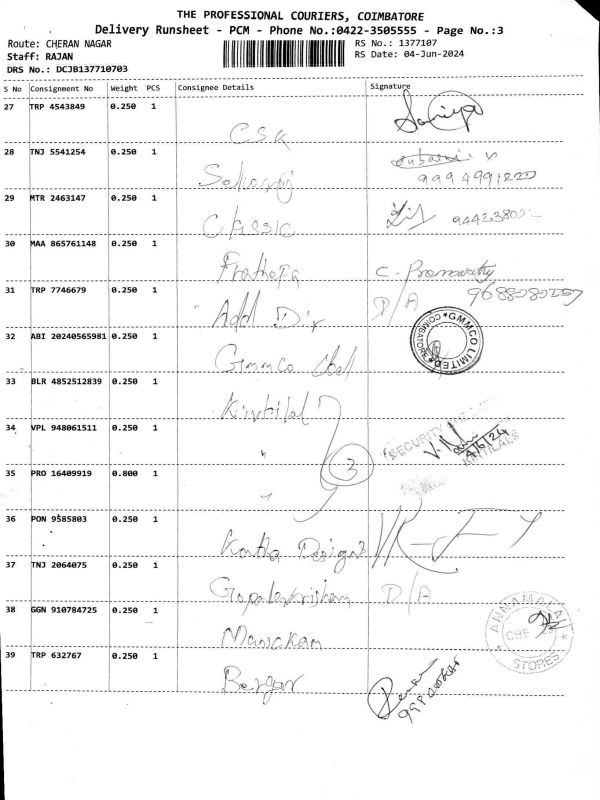 THE PROFESSIONAL COURIERS, COIMBATORE
Delivery Runsheet - PCM - Phone No.:0422-3505555 - Page No.:3
Route: CHERAN NAGAR
RS No.: 1377107
Staff: RAJAN
RS Date: 04-Jun-2024
DRS No.: DCJB137710703
S No Consignment No Weight PCS Consignee Details Signature
27 TRP 4543849 0.250 1
CSK
28 TNJ 5541254 0.250 1
9994991220
29 MTR 2463147 0.250 1
Classic
30 MAA 865761148 0.250 1
Prathepa
31 TRP 7746679 0.250 1
Addl Dir D/A
32 ABI 20240565981 0.250 1
GMMCO LIMITED * COIMBATORE *
Gmmco Cbe
33 BLR 4852512839 0.250 1
34 VPL 948061511 0.250 1
SECURITY
4/6/24
3
35 PRO 16409919 0.800 1
36 PON 9585803 0.250 1
Designs
37 TNJ 2064075 0.250 1
Gopalakrishnan D/A
38 GGN 910784725 0.250 1
ANNAMALAI STORES
Manickam
39 TRP 632767 0.250 1
Berger